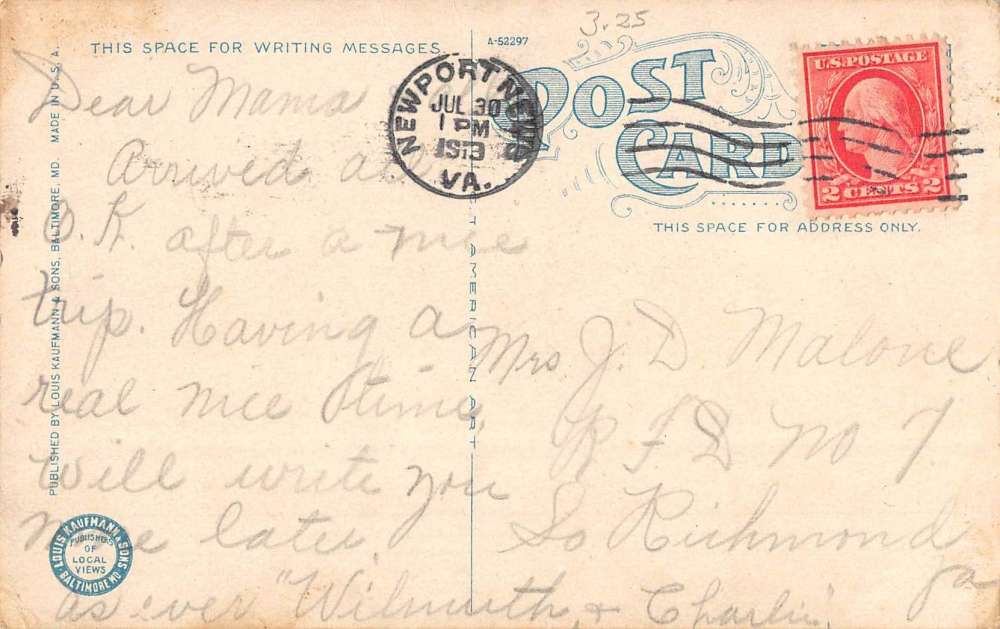 3.25
THIS SPACE FOR WRITING MESSAGES.
A-52297
POST CARD
THIS SPACE FOR ADDRESS ONLY.
U.S. POSTAGE
2 CENTS 2
NEWPORT NEWS
JUL 30
1 PM
VA.
Dear Mama
Arrived all
O.K. after a nice
trip. Having a
real nice time,
will write you
more later,
as ever "Wilmuth & Charlie"
Mrs J. D. Malone
R F D No 7
So Richmond
Va
PUBLISHED BY LOUIS KAUFMANN & SONS, BALTIMORE, MD. MADE IN U.S.A.
AMERICAN ART
LOUIS KAUFMANN & SONS
PUBLISHERS
OF
LOCAL
VIEWS
BALTIMORE MD